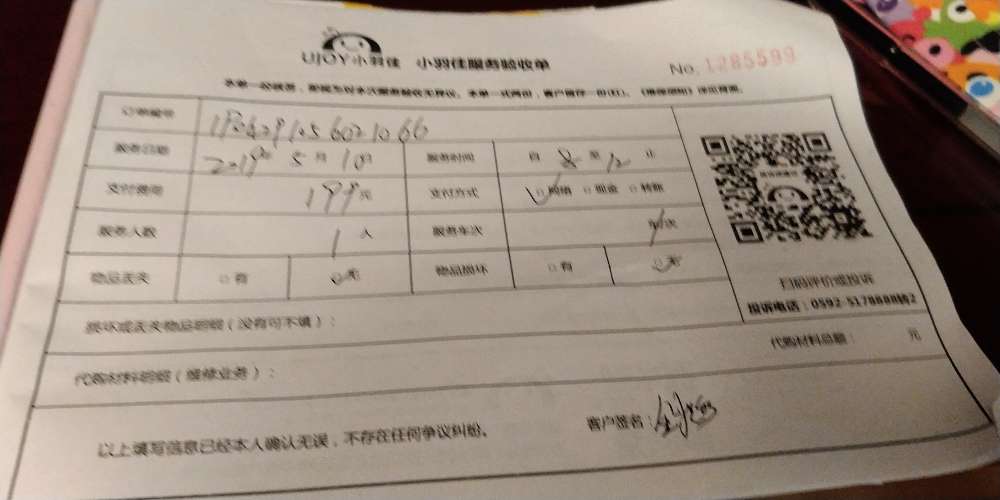 UJOY小羽佳 小羽佳服务验收单
No. 1285599
本单一经签署，即视为对本次服务验收无异议。本单一式两份，客户留存一份(红)。
订单编号
服务日期 2019年 5月 10日 服务时间 自 8 至 12 止
支付费用 199元 支付方式 □网络 □现金 □转账
服务人数 1人 服务车次 车/次
物品丢失 □有 □无 物品损坏 □有 □无
扫码评价或投诉
投诉电话：0592-5178888转2
损坏或丢失物品明细（没有可不填）：
代购材料明细（维修业务）： 代购材料总额： 元
以上填写信息已经本人确认无误，不存在任何争议纠纷。 客户签名：